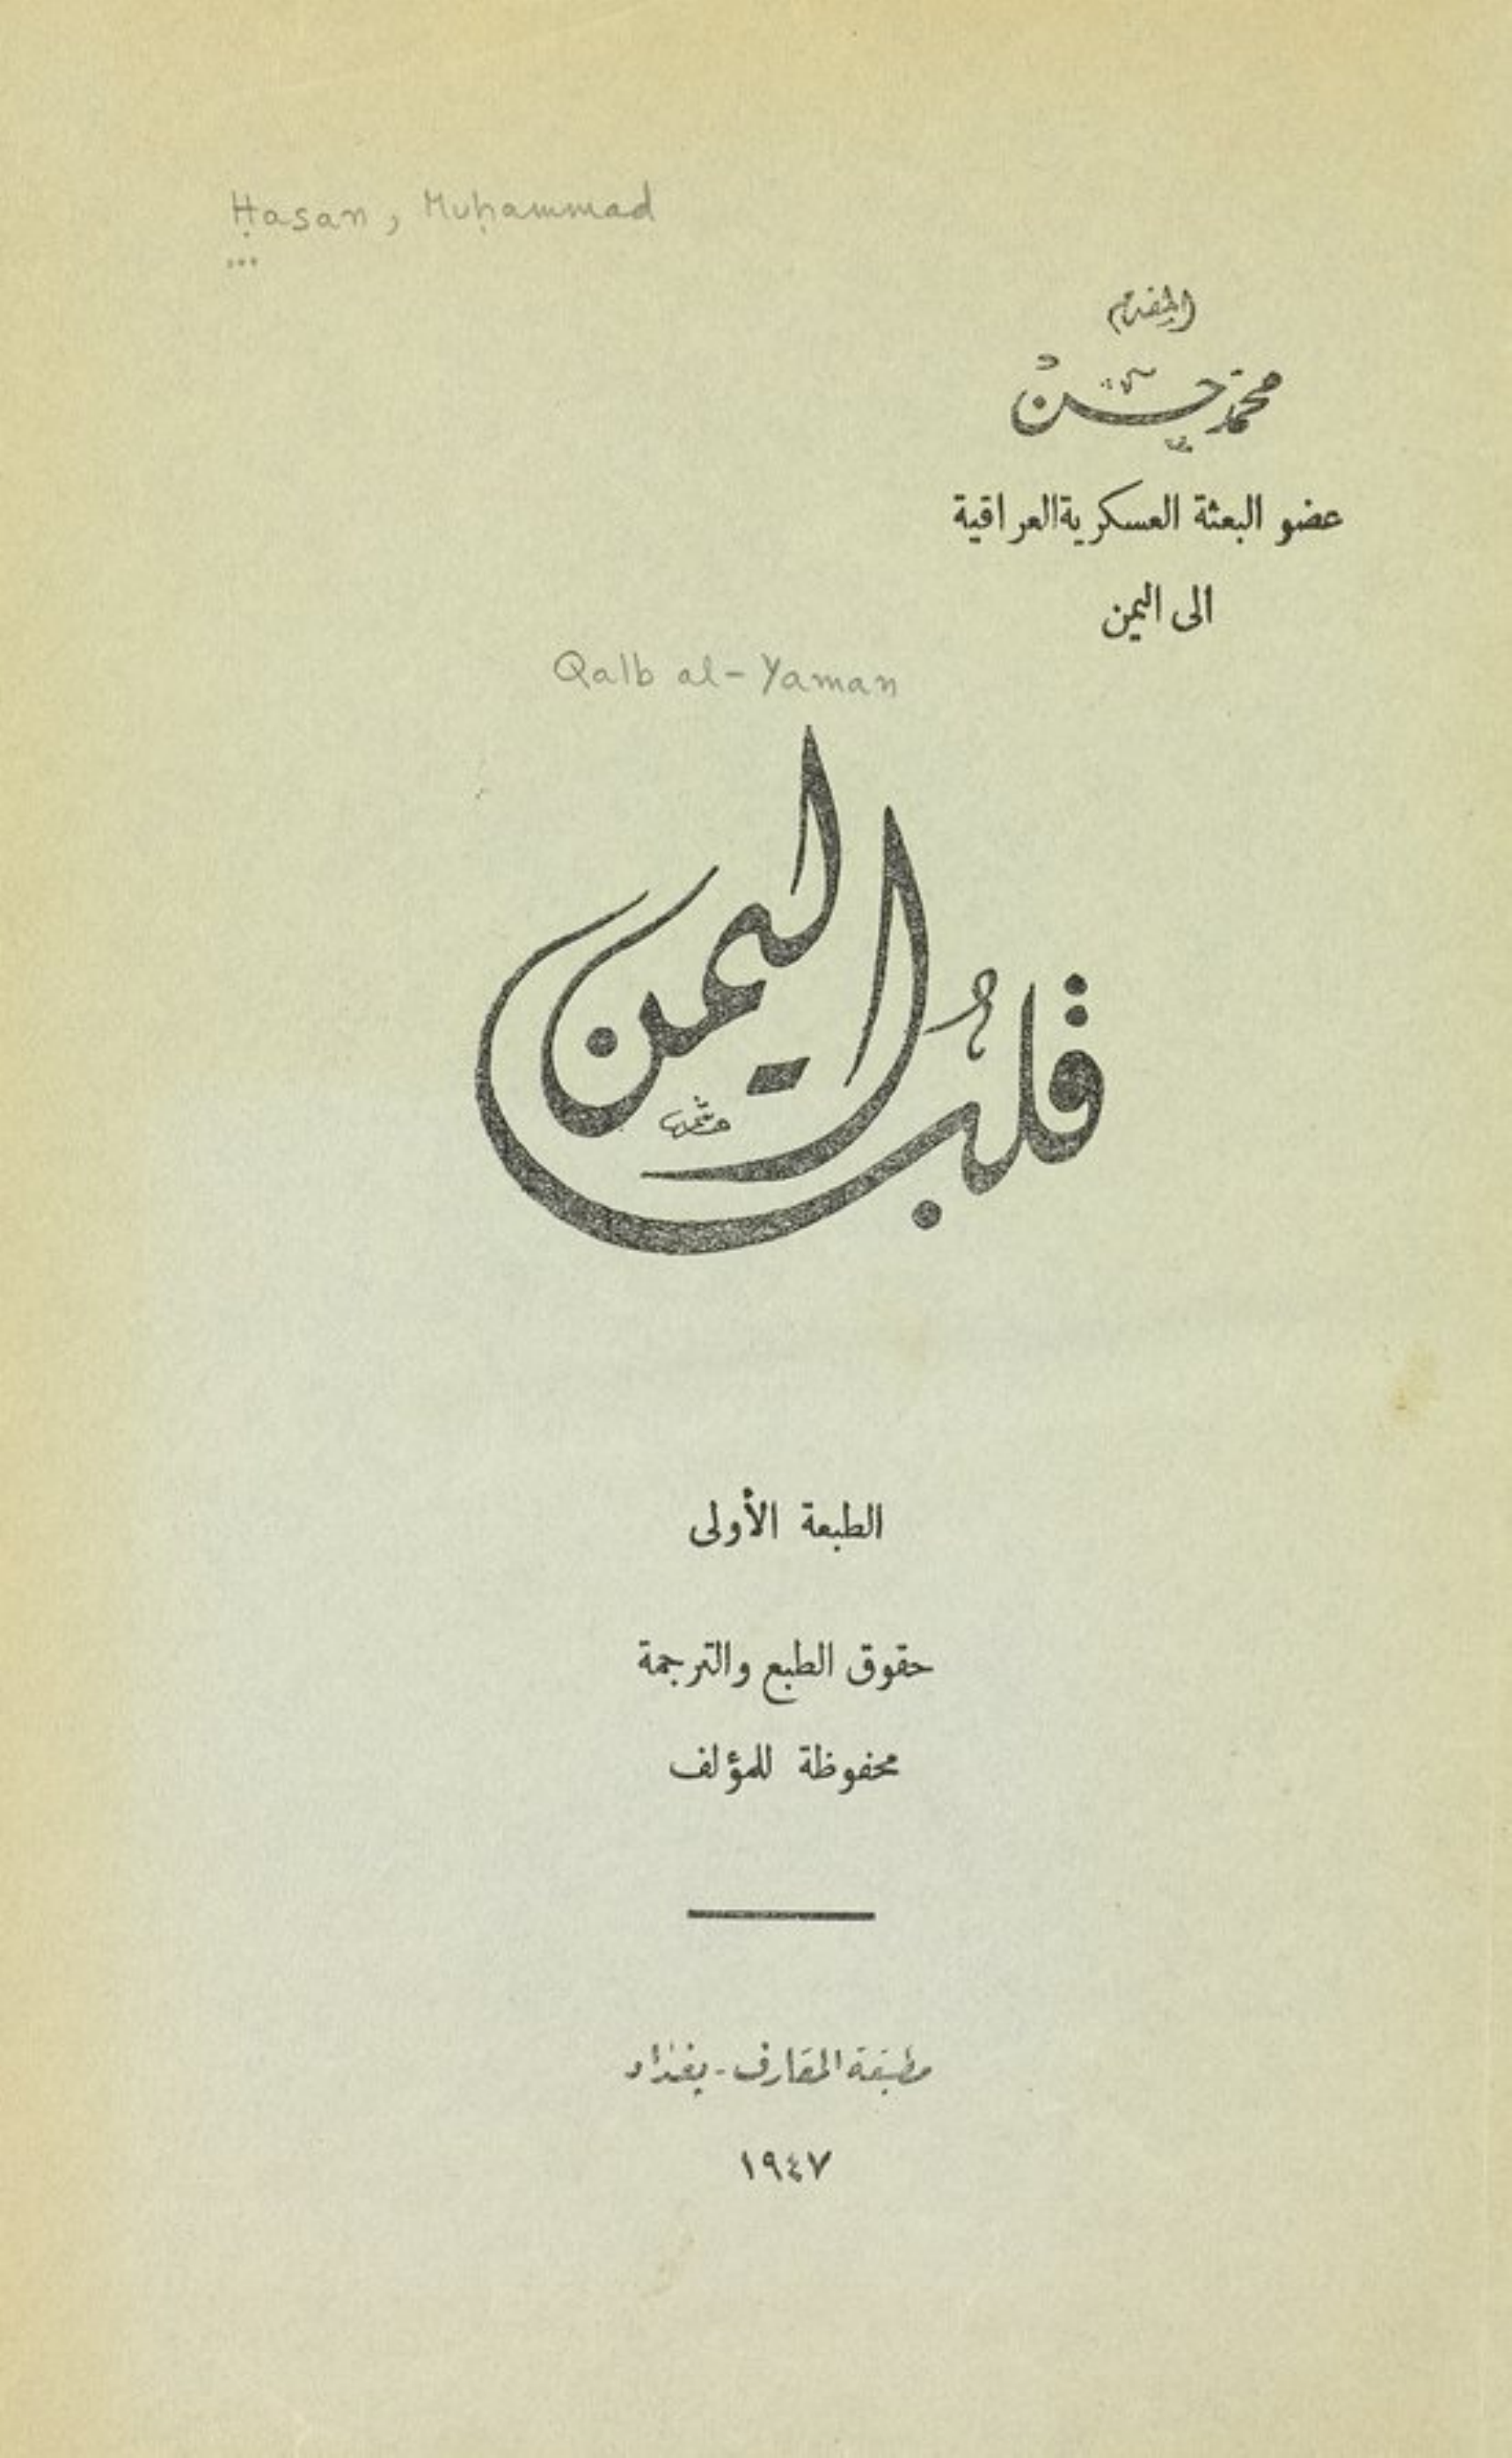 Ḥasan, Muḥammad
...
المقدم
محمد حسن
عضو البعثة العسكرية العراقية
الى اليمن
Qalb al-Yaman
قلب اليمن
الطبعة الأولى
حقوق الطبع والترجمة
محفوظة للمؤلف
مطبعة المعارف - بغداد
١٩٤٧